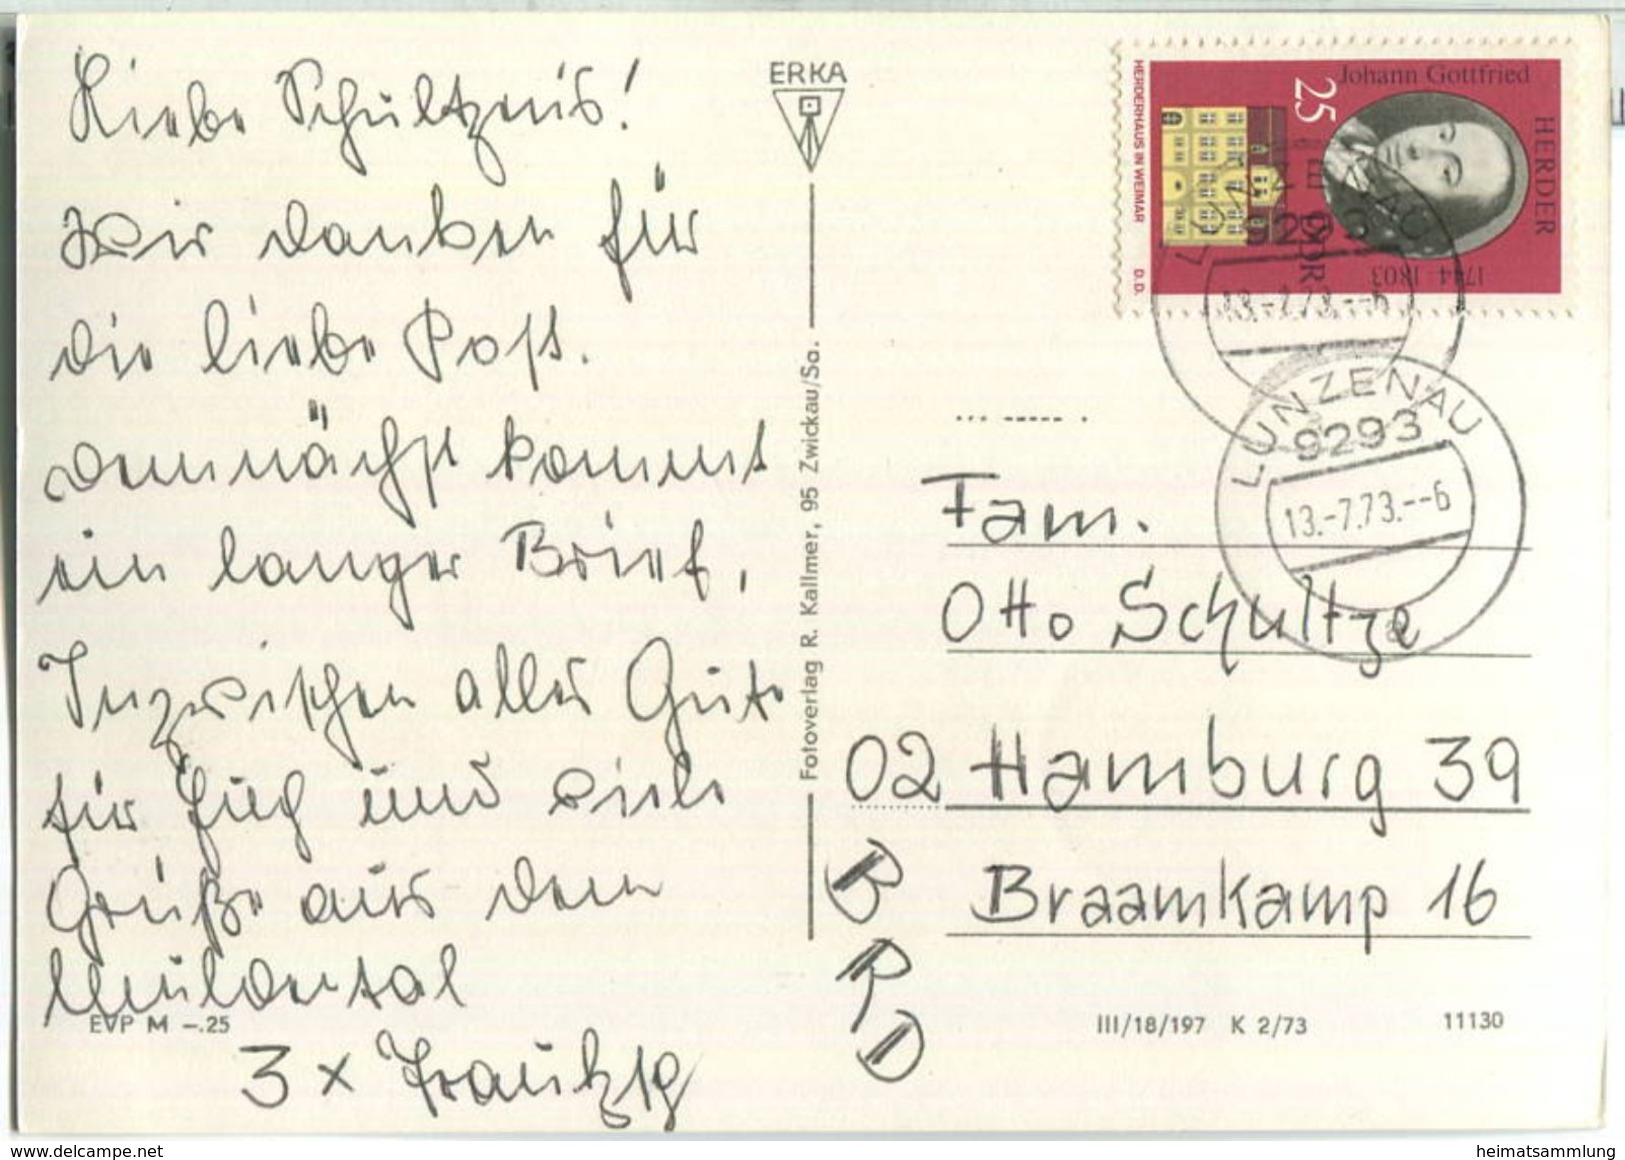 Liebe Schultzens!
Wir danken für
die liebe Post.
Demnächst kommt
ein langer Brief.
Inzwischen alles Gute
für Euch und viele
Grüße aus dem
Muldental
EVP M -.25
3 x
ERKA
Fotoverlag R. Kallmer, 95 Zwickau/Sa.
Johann Gottfried
HERDER
1744 1803
25
DDR
HERDERHAUS IN WEIMAR
D.D.
LUNZENAU
9293
13.-7.73.--6
LUNZENAU
9293
13.-7.73.--6
a
Fam.
Otto Schultze
02 Hamburg 39
Braamkamp 16
BRD
III/18/197 K 2/73
11130
delcampe.net
heimatsammlung